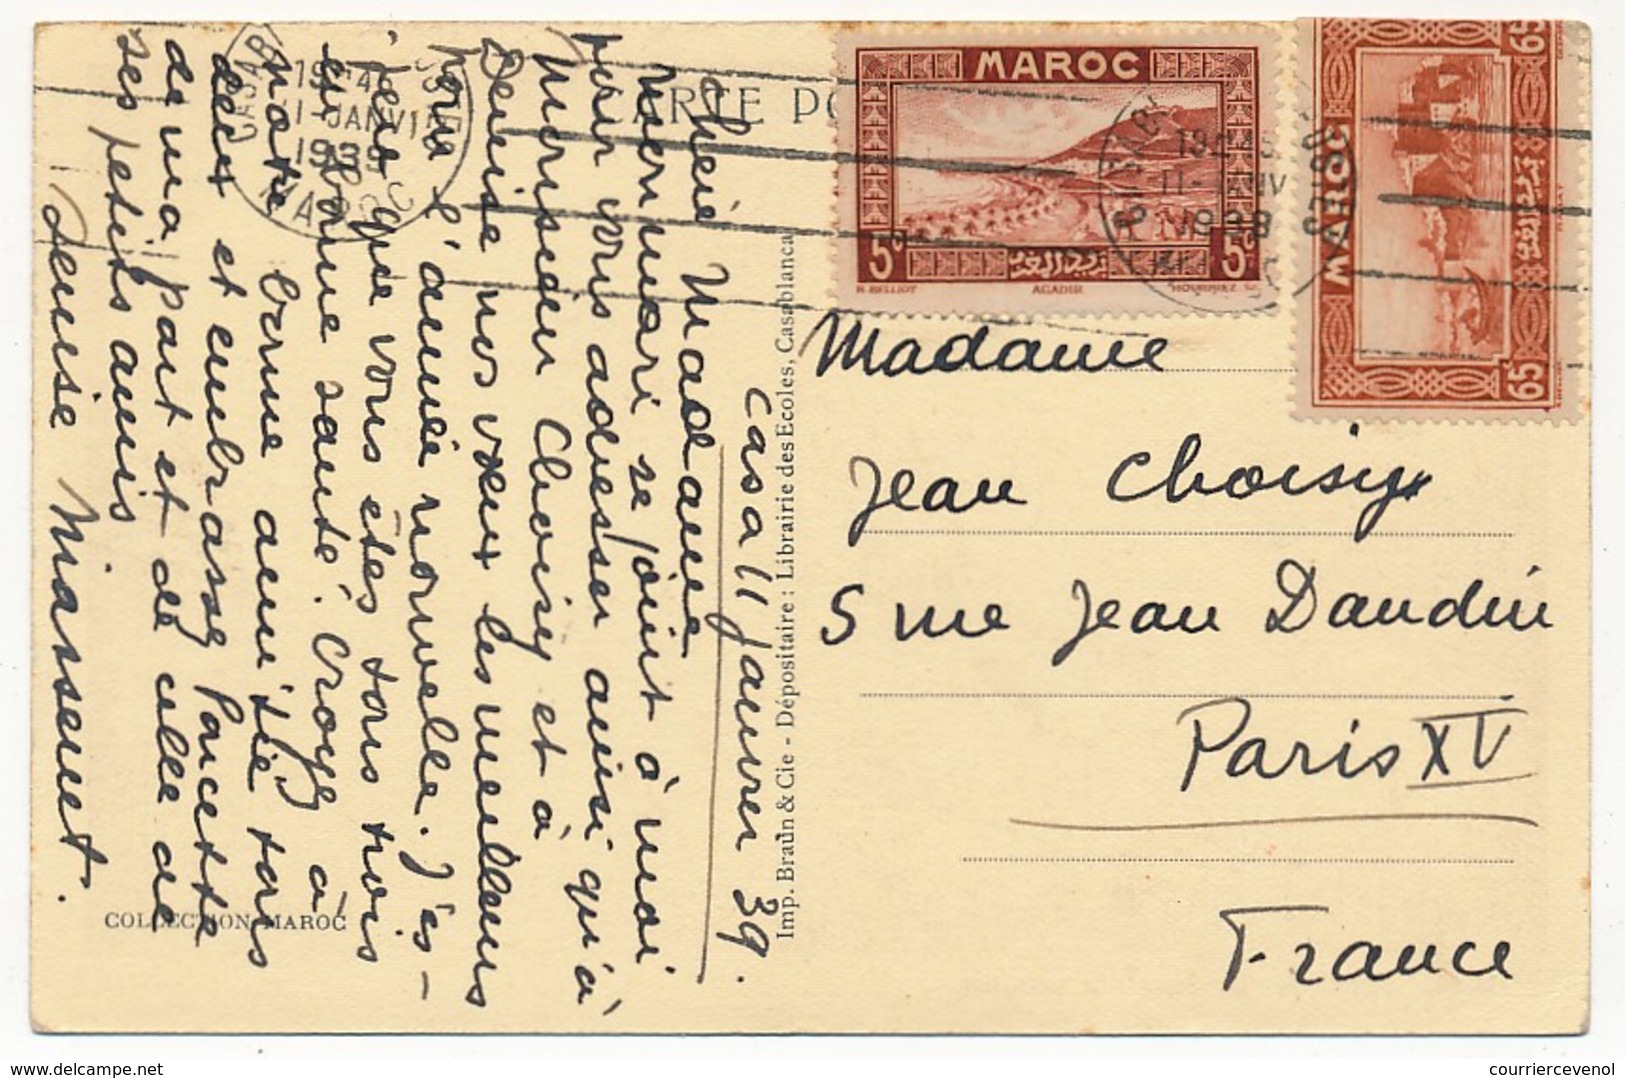 CARTE PO
Casa 11 janvier 39.
Chère Madame
Mon mari se joint à moi
pour vous adresser ainsi qu'à
Monsieur Choisy et à
Denise nos vœux les meilleurs
pour l'année nouvelle. J'es-
père que vous êtes tous trois
en bonne santé. Croyez à
notre bonne amitié tous
deux et embrassez Poucette
de ma part et de celle de
ses petits amis
Denise Massenet.
COLLECTION MAROC
Imp. Braün & Cie - Dépositaire : Librairie des Ecoles, Casablanca
MAROC
5c 5c
R. BELLIOT AGADIR HOURRIEZ Sc.
MAROC
65c 65
CASABLANCA
19H45
11-JANV
1939
MAROC
19H45
11-JANV
1939
Madame
Jean Choisy
5 rue Jean Daudin
Paris XV
France
courriercevenol